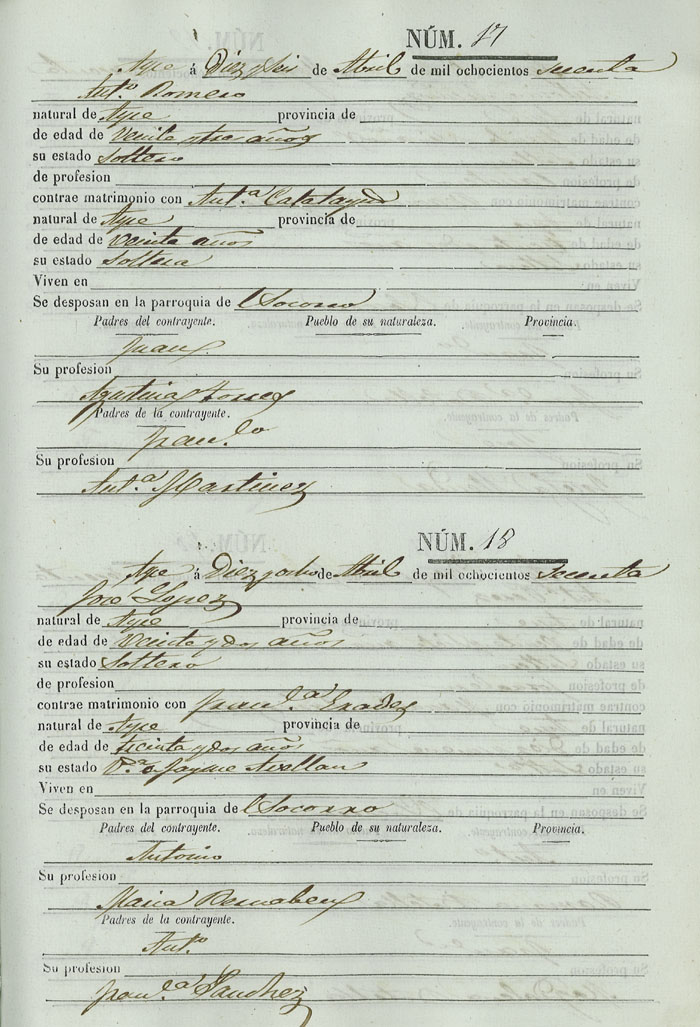 NÚM. 17
Aspe á Diez y Seis de Abril de mil ochocientos Secenta
Ant.º Romero
natural de Aspe provincia de
de edad de veinte y tres años
su estado Soltero
de profesion
contrae matrimonio con Ant.ª Calatayud
natural de Aspe provincia de
de edad de veinte años
su estado Soltera
Viven en
Se desposan en la parroquia de l Socorro
Padres del contrayente. Pueblo de su naturaleza. Provincia.
Juan
Su profesion
Agustina Torres
Padres de la contrayente.
Fran.co
Su profesion
Ant.ª Martinez
NÚM. 18
Aspe á Diez y ocho de Abril de mil ochocientos Secenta
José Lopez
natural de Aspe provincia de
de edad de veinte y dos años
su estado Soltero
de profesion
contrae matrimonio con Fran.ca Erades
natural de Aspe provincia de
de edad de treinta y dos años
su estado V.ª Jayme Avellan
Viven en
Se desposan en la parroquia de l Socorro
Padres del contrayente. Pueblo de su naturaleza. Provincia.
Antonio
Su profesion
Maria Bernabeu
Padres de la contrayente.
Ant.º
Su profesion
Fran.ca Sanchez